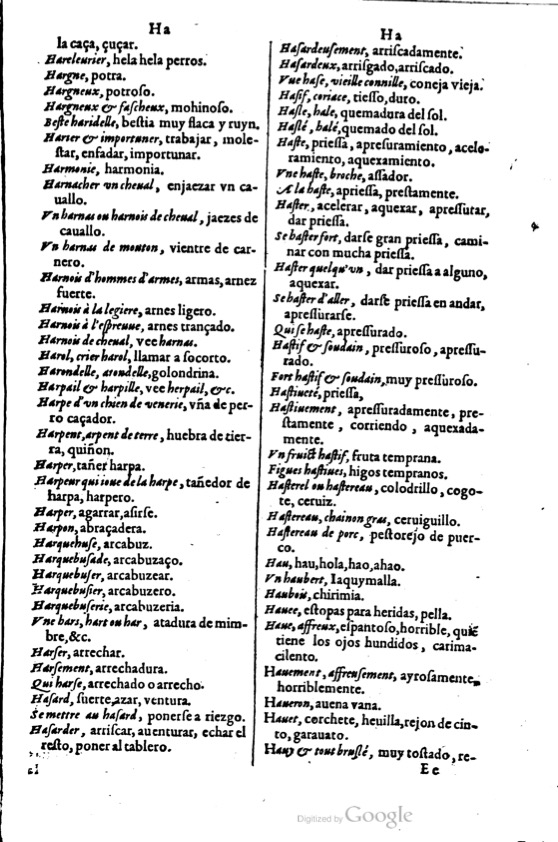 Ha
la caça, çuçar.
Hareleurier, hela hela perros.
Hargne, potra.
Hargneux, potroso.
Hargneux & fascheux, mohinoso.
Beste haridelle, bestia muy flaca y ruyn.
Harier & importuner, trabajar, mole-
star, enfadar, importunar.
Harmonie, harmonia.
Harnacher vn cheual, enjaezar vn ca-
uallo.
Vn harnas ou harnois de cheual, jaezes de
cauallo.
Vn harnas de mouton, vientre de car-
nero.
Harnois d'hommes d'armes, armas, arnez
fuerte.
Harnois à la legiere, arnes ligero.
Harnois à l'espreuue, arnes trançado.
Harnois de cheual, vee harnas.
Harol, crier harol, llamar a socorto.
Harondelle, arondelle, golondrina.
Harpail & harpille, vee herpail, &c.
Harpe d'vn chien de venerie, vña de per-
ro caçador.
Harpent, arpent de terre, huebra de tier-
ra, quiñon.
Harper, tañer harpa.
Harpeur qui ioue de la harpe, tañedor de
harpa, harpero.
Harper, agarrar, asirse.
Harpon, abraçadera.
Harquebuse, arcabuz.
Harquebusade, arcabuzaço.
Harquebuser, arcabuzear.
Harquebusier, arcabuzero.
Harquebuserie, arcabuzeria.
Vne hars, hart ou har, atadura de mim-
bre, &c.
Harser, arrechar.
Harsement, arrechadura.
Qui harse, arrechado o arrecho.
Hasard, suerte, azar, ventura.
Se mettre au hasard, ponerse a riezgo.
Hasarder, arriscar, auenturar, echar el
resto, poner al tablero.
Ha
Hasardeusement, arriscadamente.
Hasardeux, arrisgado, arriscado.
Vue hase, vieille connille, coneja vieja.
Hasif, coriace, tiesso, duro.
Hasle, hale, quemadura del sol.
Haslé, balé, quemado del sol.
Haste, priessa, apresuramiento, acele-
ramiento, aquexamiento.
Vne haste, broche, assador.
A la haste, apriessa, prestamente.
Haster, acelerar, aquexar, apressurar,
dar priessa.
Se haster fort, darse gran priessa, cami-
nar con mucha priessa.
Haster quelqu'vn, dar priessa a alguno,
aquexar.
Se haster d'aller, darse priessa en andar,
apressurarse.
Qui se haste, apressurado.
Hastif & soudain, pressuroso, apressu-
rado.
Fort hastif & soudain, muy pressuroso.
Hastiueté, priessa,
Hastiuement, apressuradamente, pre-
stamente, corriendo, aquexada-
mente.
Vn fruict hastif, fruta temprana.
Figues hastiues, higos tempranos.
Hasterel ou hastereau, colodrillo, cogo-
te, ceruiz.
Hastereau, chainon gras, ceruiguillo.
Hastereau de porc, pestorejo de puer-
co.
Hau, hau, hola, hao, ahao.
Vn haubert, Iaquymalla.
Haubois, chirimia.
Hauee, estopas para heridas, pella.
Haue, affreux, espantoso, horrible, quiẽ
tiene los ojos hundidos, carima-
cilento.
Hauement, affreusement, ayrosamente,
horriblemente.
Haueron, auena vana.
Hauet, corchete, heuilla, rejon de cin-
to, garauato.
Hauy & tout bruslé, muy tostado, re-
Ee
Digitized by Google